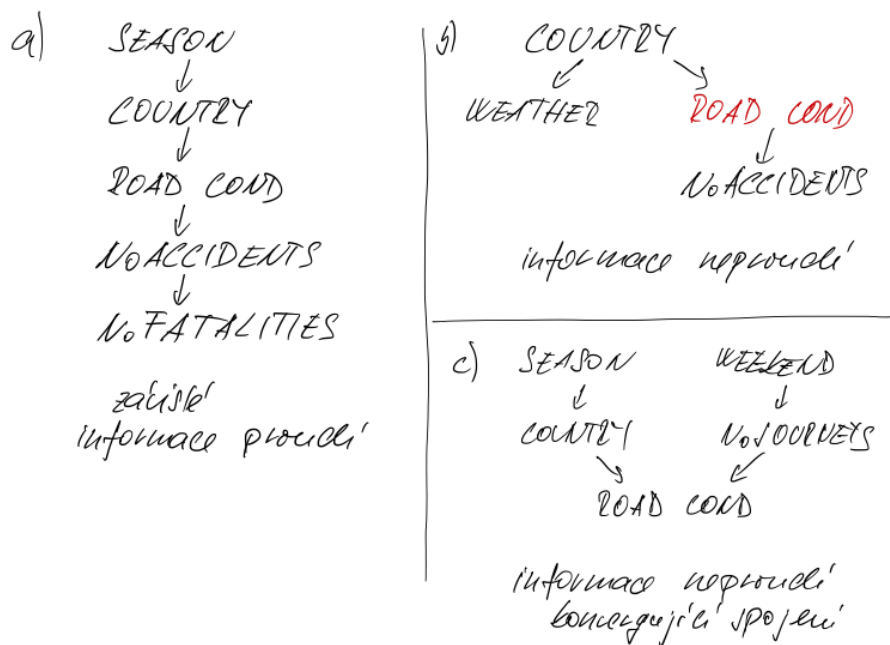 a) SEASON
COUNTRY
ROAD COND
NoACCIDENTS
NoFATALITIES
závislé
informace proudí
b) COUNTRY
WEATHER ROAD COND
NoACCIDENTS
informace neproudí
c) SEASON WEEKEND
COUNTRY NoJOURNEYS
ROAD COND
informace neproudí
konvergující spojení